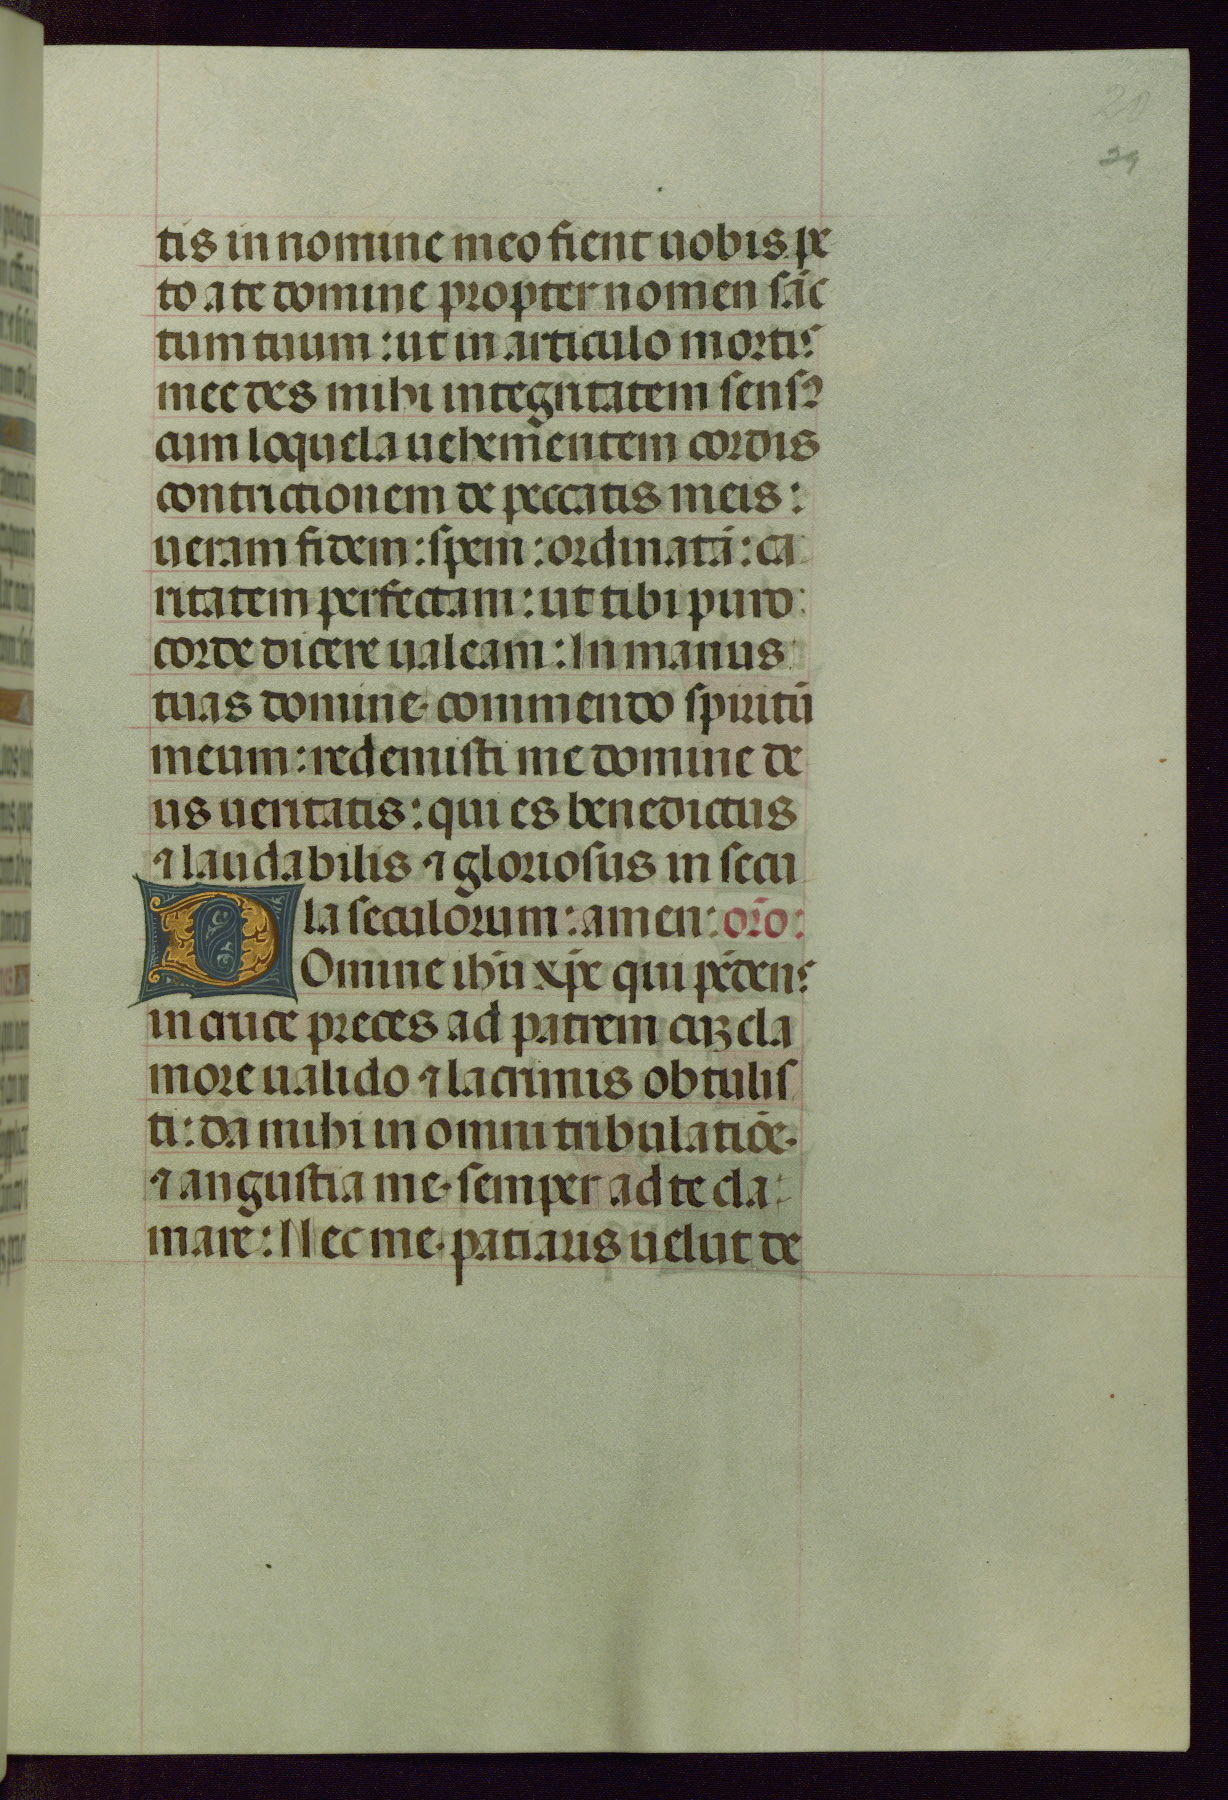 20
29
tis in nomine meo fient uobis pe
to a te domine propter nomen sāc
tum tuum : ut in articulo mortis
mee des mihi integritatem sensꝰ
cum loquela uehementem cordis
contrictionem de peccatis meis :
ueram fidem : spem : ordinatā : ca
ritatem perfectam : ut tibi puro
corde dicere ualeam : In manus
tuas domine · commendo spiritū
meum : redemisti me domine de
us ueritatis : qui es benedictus
⁊ laudabilis ⁊ gloriosus in secu
la seculorum : amen : or̄o :
DOmine ihū xp̄e qui pēdens
in cruce preces ad patrem cuꝫ cla
more ualido ⁊ lacrimis obtulis
ti : da mihi in omni tribulatiōe ·
⁊ angustia me · semper ad te cla
mare : Nec me · patiaris uelut de